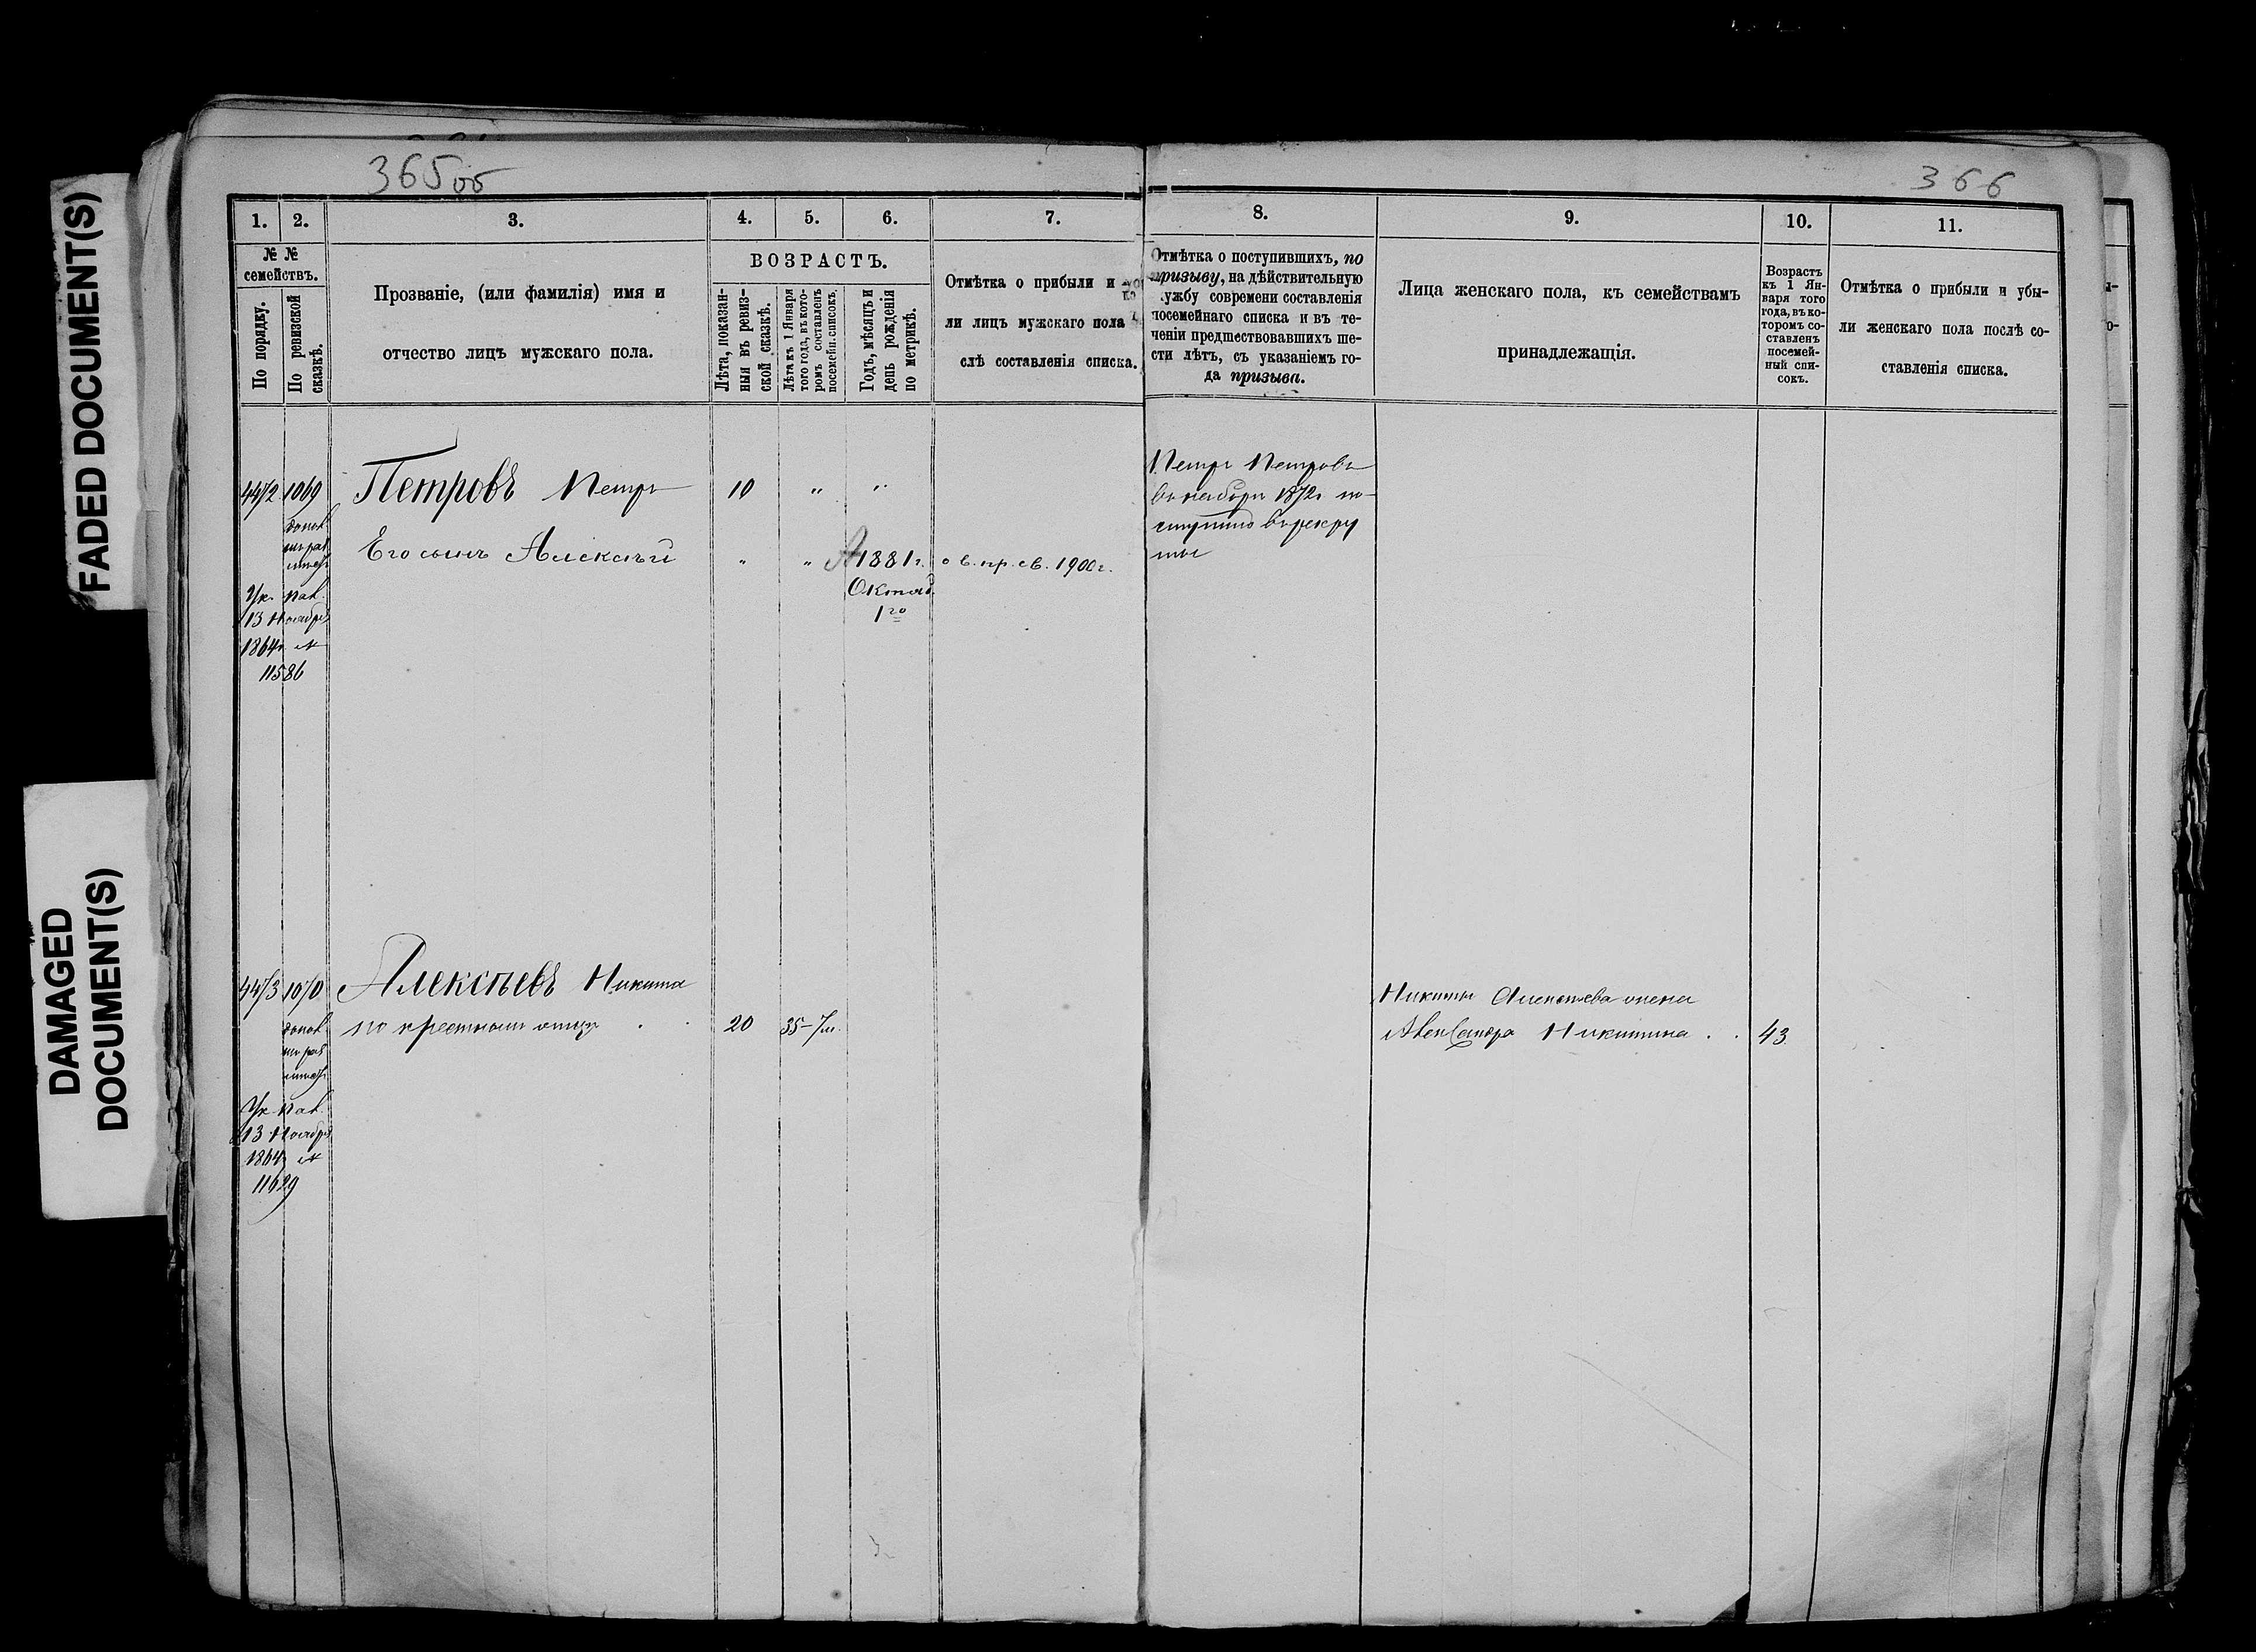 FADED DOCUMENT(S)
DAMAGED
DOCUMENT(S)
365об
366
1. 2. 3. 4. 5. 6. 7. 8. 9. 10. 11.
№ №
семействъ.
По порядку.
По ревизской
сказкѣ.
Прозваніе, (или фамилія) имя и
отчество лицъ мужскаго пола.
ВОЗРАСТЪ.
Лѣта, показан-
ныя въ ревиз-
ской сказкѣ.
Лѣта къ 1 Января
того года, въ кото-
ромъ составленъ
посемейн. списокъ.
Годъ, мѣсяцъ и
день рожденія
по метрикѣ.
Отмѣтка о прибыли и
ли лицъ мужскаго пола
слѣ составленія списка.
Отмѣтка о поступившихъ, по
призыву, на дѣйствительную
службу современи составленія
посемейнаго списка и въ те-
ченіи предшествовавшихъ ше-
сти лѣтъ, съ указаніемъ го-
да призыва.
Лица женскаго пола, къ семействамъ
принадлежащія.
Возрастъ
къ 1 Ян-
варя того
года, въ ко-
торомъ со-
ставленъ
посемей-
ный спи-
сокъ.
Отмѣтка о прибыли и убы-
ли женскаго пола послѣ со-
ставленія списка.
4472 1069 Петровъ Петръ 10 " "
Его сынъ Алексѣй " " 1881г. о в. пр. св. 1900г.
Октяб.
1го
Ук. пал.
13 Ноября
1864г №
11586
Петръ Петровъ
въ наборъ 1872г по-
ступилъ въ рекру
ты
4473 1070 Алексѣевъ Никита
по крестному отцу 20 35-7м.
Ук. пал.
13 Ноября
1864г №
11629
Никиты Алексѣева жена
Александра Никитина 43